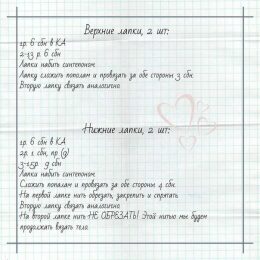 Верхние лапки, 2 шт:
1р. 6 сбн в КА
2-13 р. 6 сбн
Лапки набить синтепоном
Лапку сложить пополам и провязать за обе стороны 3 сбн.
Вторую лапку связать аналогично.
Нижние лапки, 2 шт:
1р. 6 сбн в КА
2р. 1 сбн, пр (9)
3-15р. 9 сбн
Лапки набить синтепоном.
Сложить пополам и провязать за обе стороны 4 сбн.
На первой лапке нить обрезать, закрепить и спрятать
Вторую лапку связать аналогично
На второй лапке нить НЕ ОБРЕЗАТЬ! Этой нитью мы будем
продолжать вязать тело.